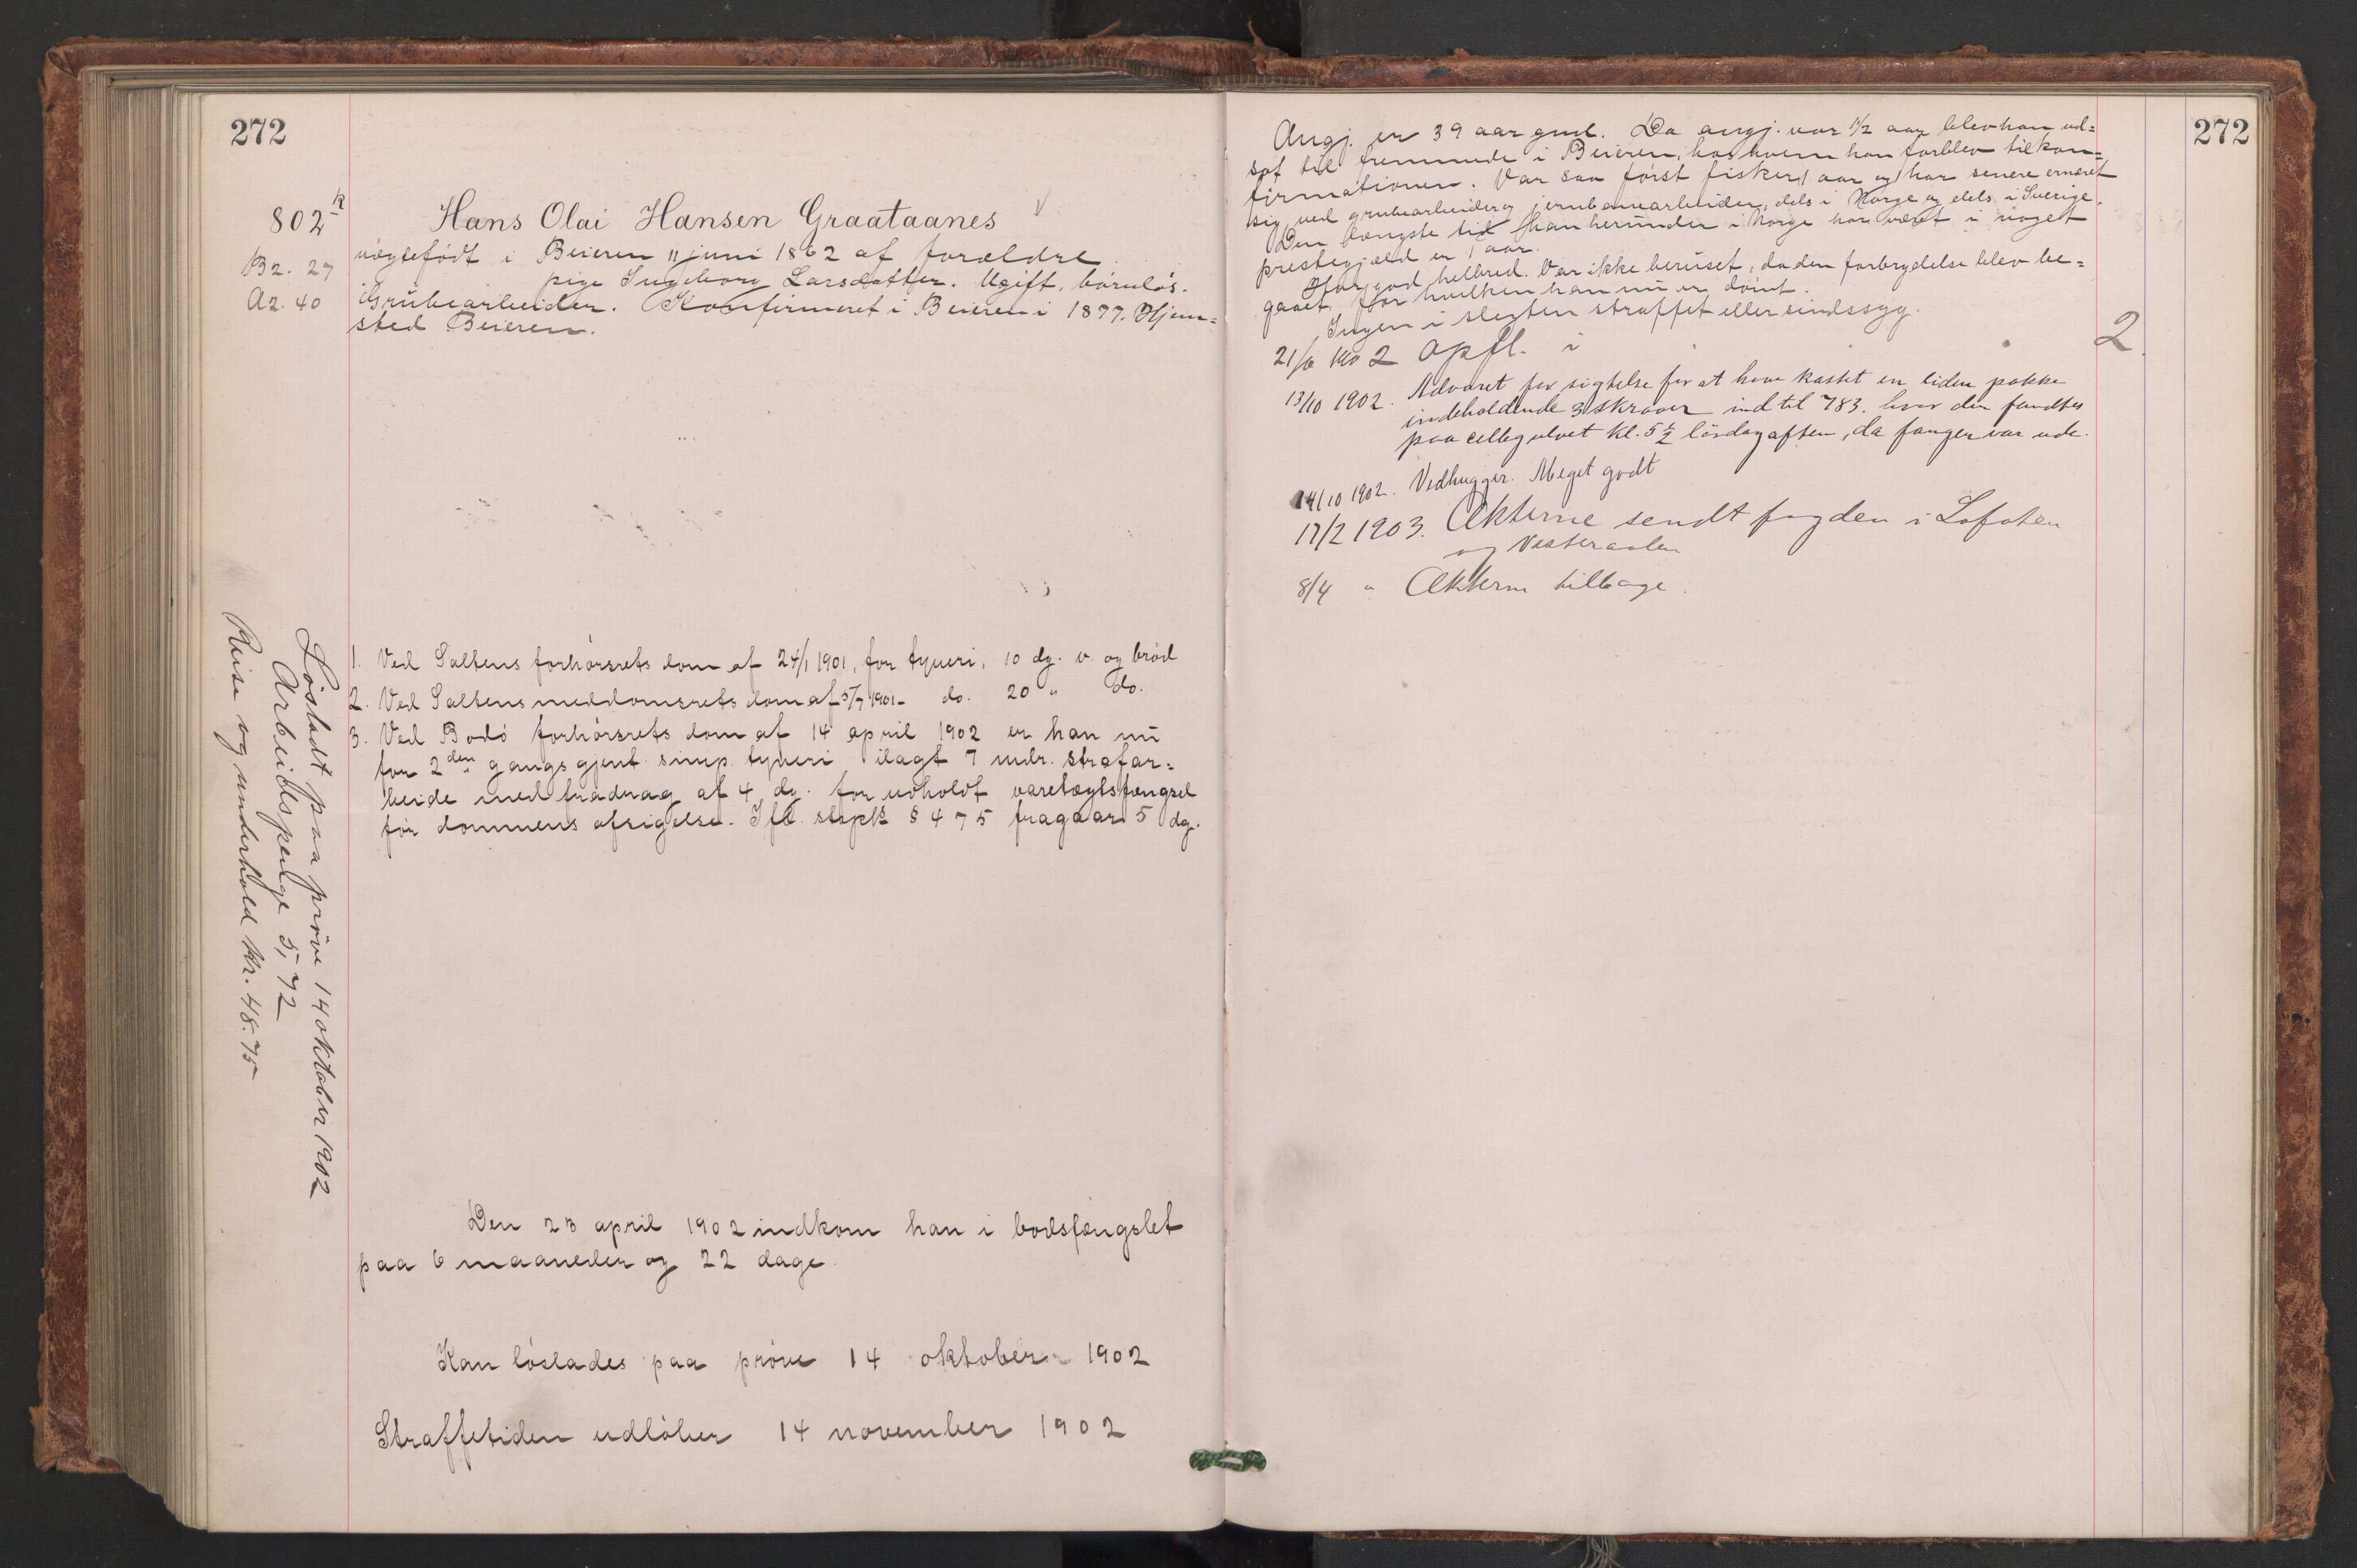 272
802 R
B2. 27
A2. 40
Hans Olai Hansen Graataanes
uægtefødt i Beieren 11 juni 1862 af forældre
pige Ingeborg Larsdatter. Ugift, børnløs.
Grubearbeider. Konfirmeret i Beieren i 1877. Hjem=
sted Beieren.
1. Ved Saltens forhørsrets dom af 24/1 1901, for tyveri, 10 dg. v. og brød
2. Ved Saltens meddomsrets dom af 5/7 1901 - do. 20 " do.
3. Ved Bodø forhørsrets dom af 14 april 1902 er han nu
for 2den gangs gjent. simp. tyveri ilagt 7 mdr. strafar=
beide med fradrag af 4 dg. for udholdt varetægtsfængsel
før dommens afsigelse. Ifl. stspl. § 475 fragaar 5 dg.
Løsladt paa prøve 14 oktober 1902
Arbeidspenge 5,72
Reise og underhold Kr. 48.75
Den 23 april 1902 indkom han i bodsfængslet
paa 6 maaneder og 22 dage
Kan løslades paa prøve 14 oktober 1902
Straffetiden udløber 14 november 1902
272
Angj. er 39 aar gml. Da angj. var 1 1/2 aar blev han ud=
sat til fremmede i Beieren, hos hvem han forblev til kon=
firmationen. Var saa først fisker 1 aar og har senere ernæret
sig ved grubearbeider og jernbanearbeider, dels i Norge og dels i Sverige.
Den længste tid han herunder i Norge har været i noget
prestegjæld er 1 aar.
Har god helbred. Var ikke beruset, da den forbrydelse blev be=
gaaet, for hvilken han nu er dømt.
Ingen i slegten straffet eller sindssyg.
21/6 1902 Opfl. i
2
13/10 1902. Advaret for sigtelse for at have kastet en liden pakke
indeholdende 3 skraaer ind til 783. hvor den fandtes
paa cellegulvet kl. 5 1/2 lørdag aften, da fangen var ude.
14/10 1902. Vedhugger. Meget godt
17/2 1903. Akterne sendt fogden i Lofoten
og Vesteraalen
8/4 " Akterne tilbage.